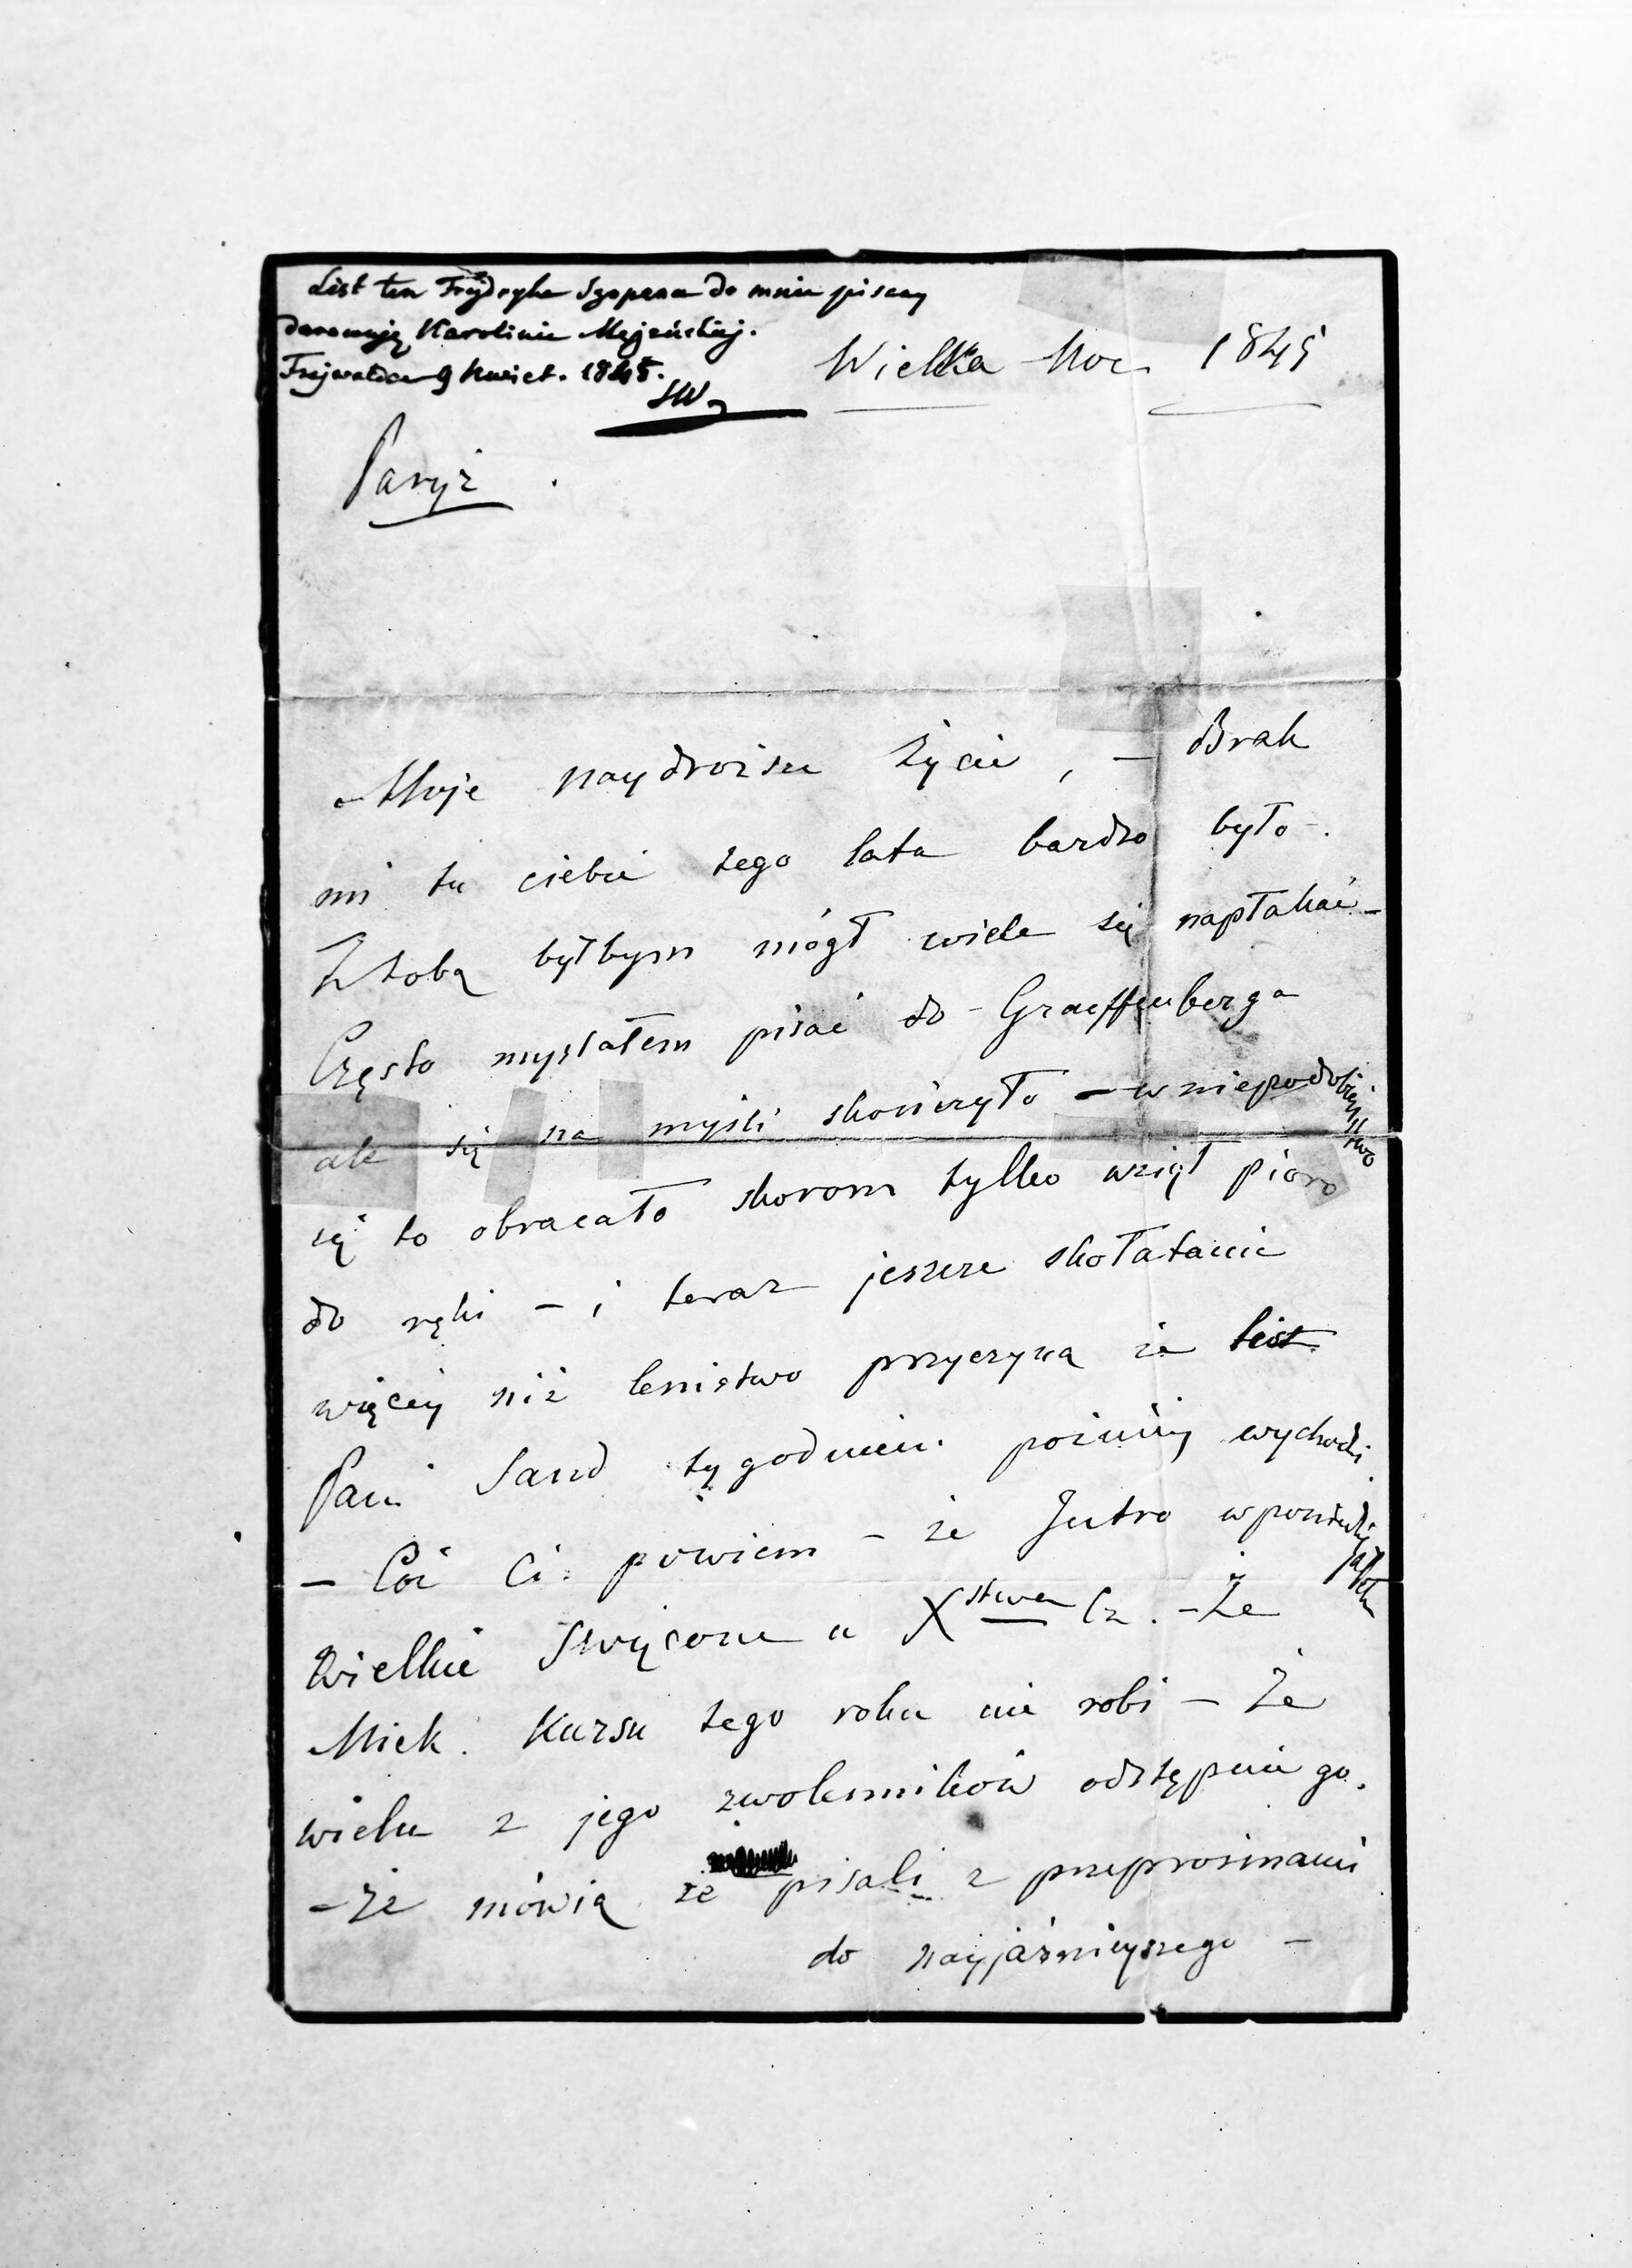 List ten Frydryka Szopena do mnie pisany
darowuję Karolinie Mężeńskiej.
Frejwaldau 9 Kwiet. 1845.
SW
Wielka Noc 1845
Paryż.
Moje naydroższe życie, – Brak
mi tu ciebie tego lata bardzo było –.
Z tobą byłbym mógł wiele się napłakać –
Często myslałem pisać do Graeffenberga
ale się na myśli skończyło – w niepodobieństwo
się to obracało skorom tylko wziął pioro
do ręki – i teraz jeszcze skołatanie
więcey niż lenistwo przyczyną że list
Pani Sand tygodniem pózniey wychodzi.
– Cóż Ci powiem – że Jutro w poniedziałek
wielkie Swięcone u Xstwa Cz. – że
Mick. Kursu tego roku nie robi – że
wielu z jego zwolenników odstępuie go.
– że mówią że pisali z przeprosinami
do nayjaśnieyszego –